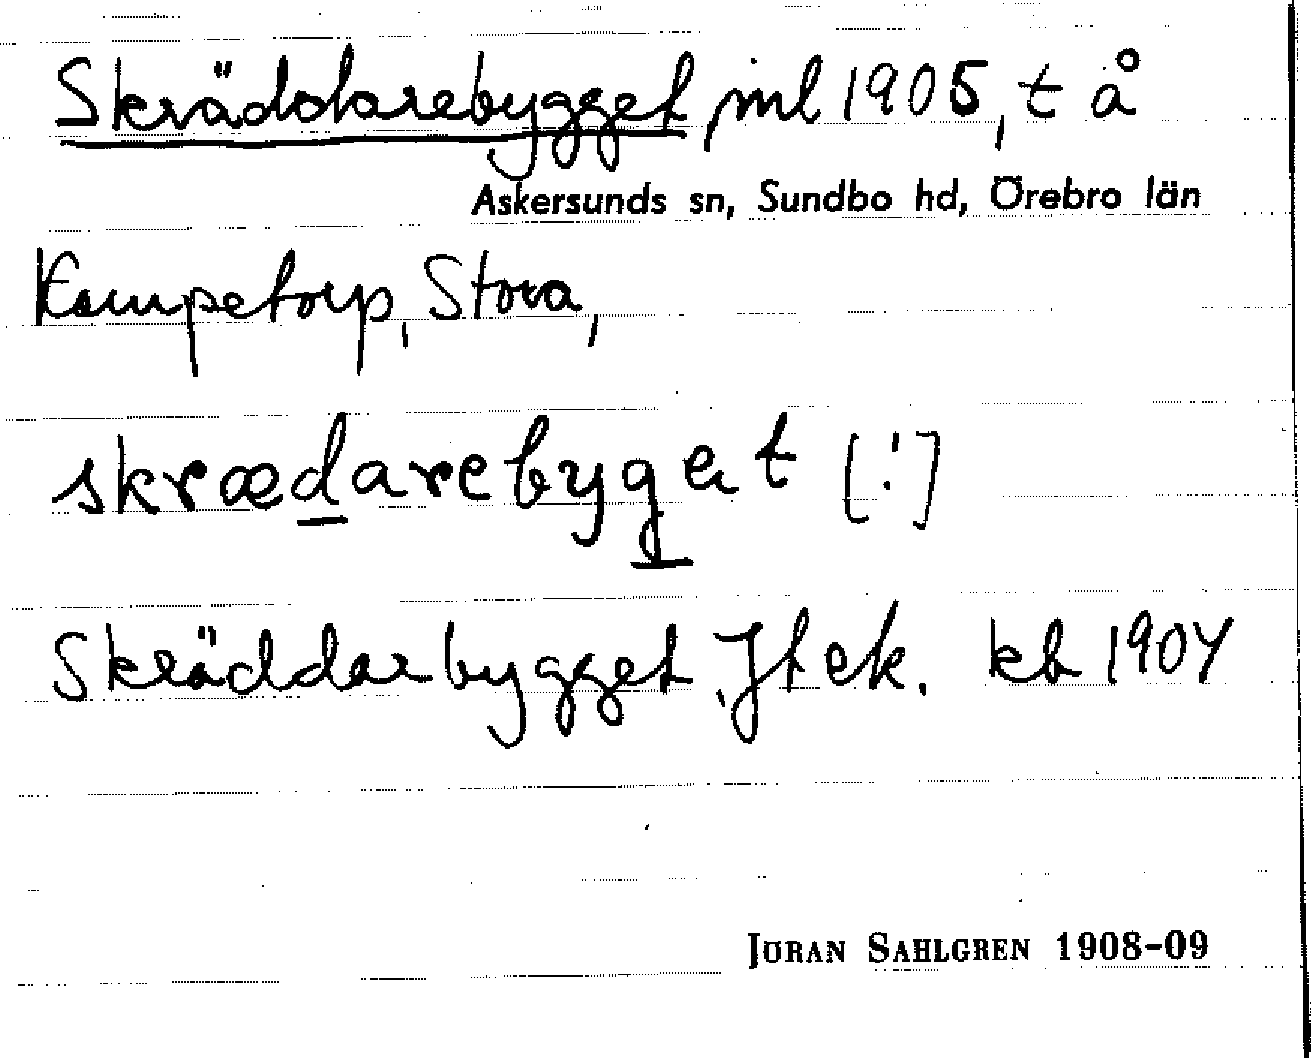 Skräddarebygget, ml 1905, t å
Askersunds sn, Sundbo hd, Örebro län
Kampetorp, Stora,
skrædarebygat [!]
Skräddarbygget, Jfr ek. kb 1904
JÖRAN SAHLGREN 1908-09